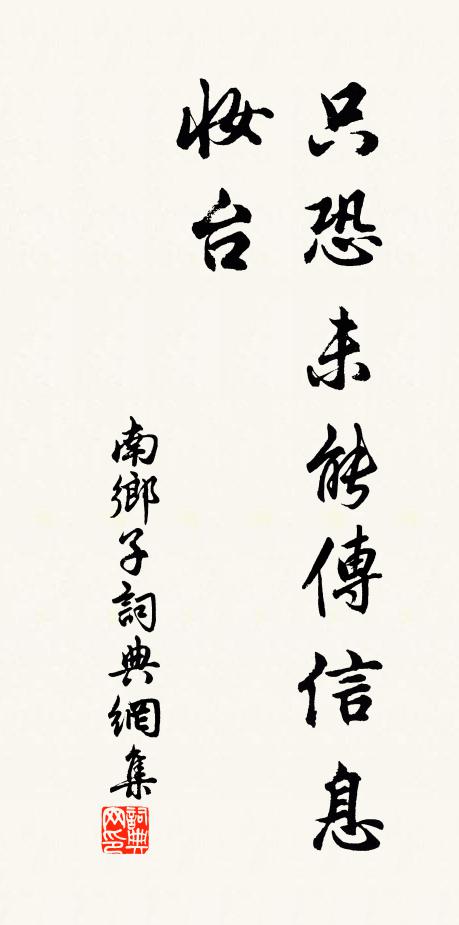 只恐未能傳信息
妝台
南鄉子詞典網集
詞典网印